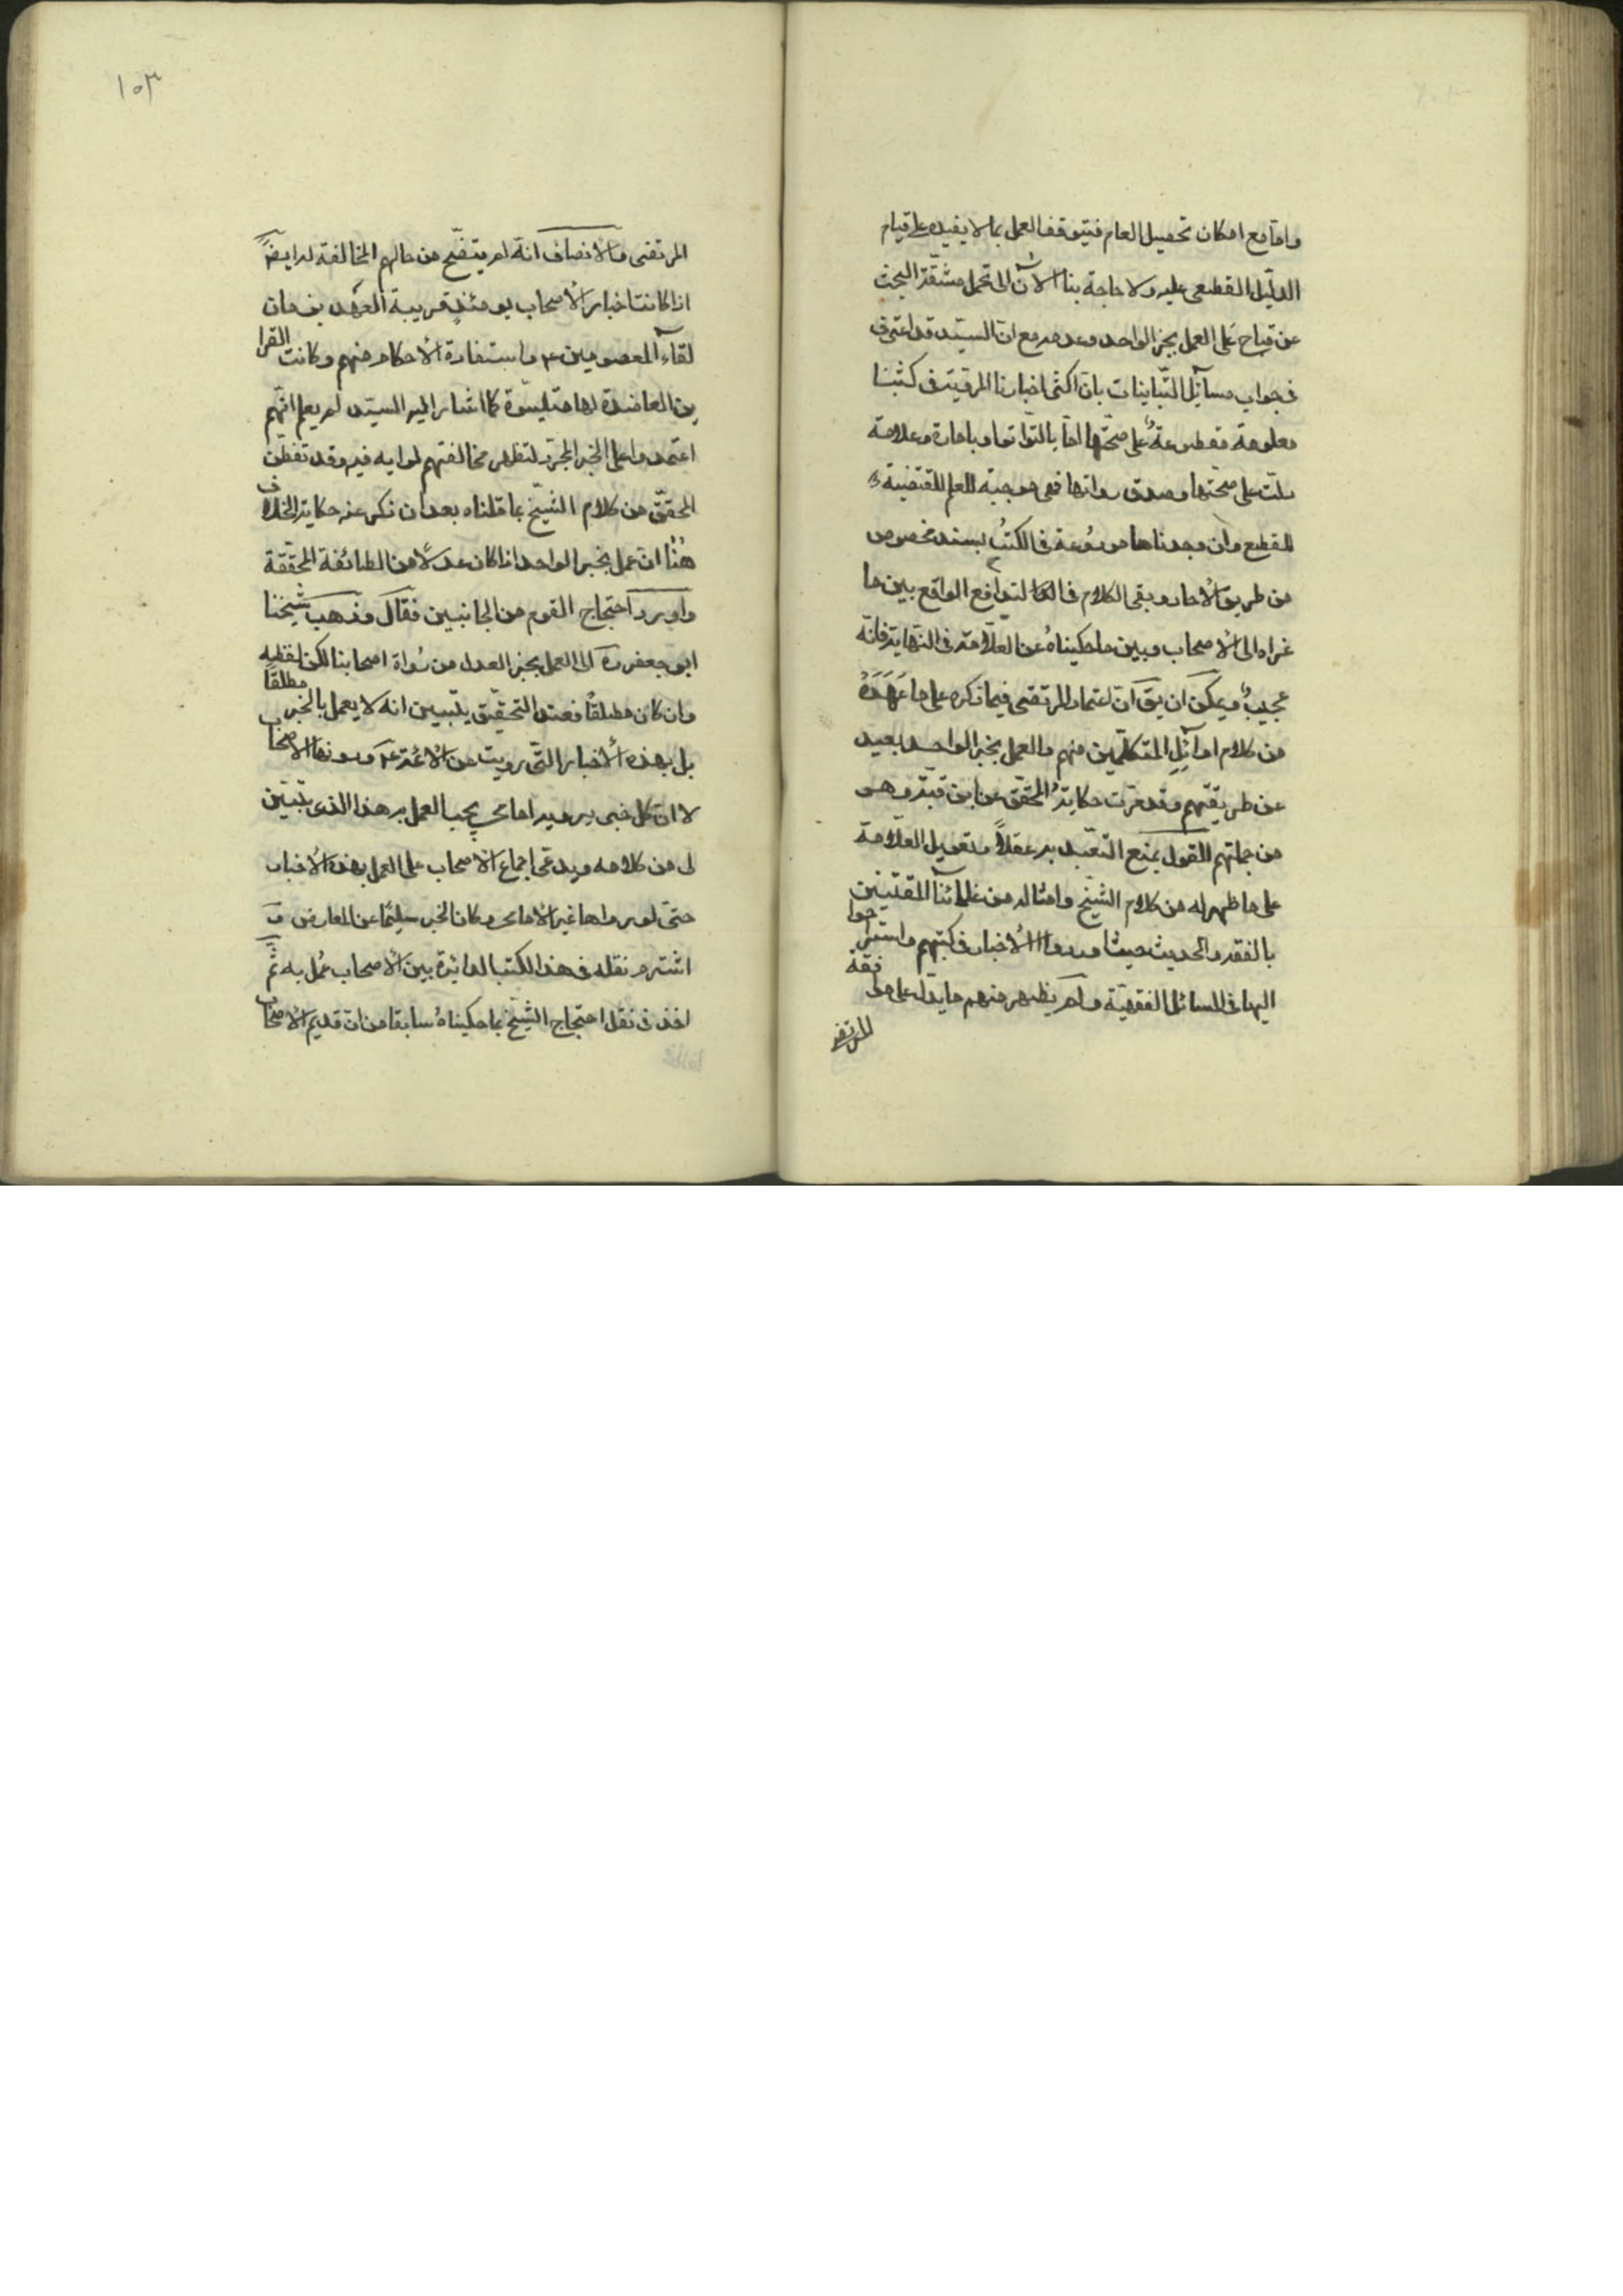 وامّا مع امكان تحصيل العلم فيتوقف العمل بما لا يفيده على قيام
الدليل القطعى عليه ولا حاجة بنا الآن الى تحمل مشقّة البحث
عن قيامه على العمل بخبر الواحد وعدمه مع انّ السيّد قد اعترف
فى جواب مسآئل التبّانيات بان اكثر اخبارنا المروية فى كتبنا
معلومة مقطوعة على صحّتها امّا بالتواتر او بامارة وعلامة
دلّت على صحّتها وصدق رواتها فهى موجبة للعلم المقتضية
للقطع وان وجدناها مودعة فى الكتب بسند مخصوص
من طريق الآحاد وبقى الكلام فى التدافع الواقع بين ما
عزاه الى الاصحاب وبين ما حكيناه عن العلّامة فى النهاية فانّه
عجيب ويمكن ان يق انّ اعتماد المرتضى فيما ذكره على ما عهده
من كلام اوآئل المتكلّمين منهم والعمل بخبر الواحد بعيد
عن طريقتهم وقد مرّت حكاية المحقق عن ابن قبة وهو
من جملتهم القول بمنع التعبّد به عقلاً وتعويل العلّامة
على ما ظهر له من كلام الشيخ وامثاله من علمائنا المعتنين
بالفقه والحديث حيث اوردوا الاخبار فى كتبهم واستعملوا
اليها فى المسائل الفقهيّة ولم يظهر منهم ما يدل على موافقة
المرتضى
١٠٣
المرتضى والانصاف انه لم يتضح من حالهم المخالفة له ايضً
اذ كانت اخبار الاصحاب يومئذ قريبة العهد بزمان
لقاء المعصومين ع واستفادة الاحكام منهم وكانت القرا
ين العاضدة لها متيسّرة كما اشار اليه السيّد لم يعلم انّهم
اعتمدوا على الخبر المجرّد لتظهر مخالفتهم لرايه فيه وقد تفطّن
المحقّق من كلام الشيخ بما قلناه بعد ان ذكر عنه حكاية الخلاف
هنا انه عمل بخبر الواحد اذا كان عدلاً من الطائفة المحققة
واورد احتجاج القوم من الجانبين فقال وذهب شيخنا
ابو جعفر ره الى العمل بخبر العدل من رواة اصحابنا لكن لفظه
وان كان مطلقاً فعند التحقيق يتبين انه لا يعمل بالخبر مطلقاً
بل بهذه الاخبار التى رويت عن الائمة ع ودونها الاصحاب
لا ان كل خبر يرويه امامى يجب العمل به هذا الذى تبيّن
لى من كلامه ويدعى اجماع الاصحاب على العمل بهذه الاخبار
حتى لو رواها غير الامامى وكان الخبر سليمًا عن المعارض و
اشتهر نقله فى هذه الكتب الدائرة بين الاصحاب عمل به ثمّ
اخذ فى نقل احتجاج الشيخ بما حكيناه سابقا من ان قديم الاصحاب